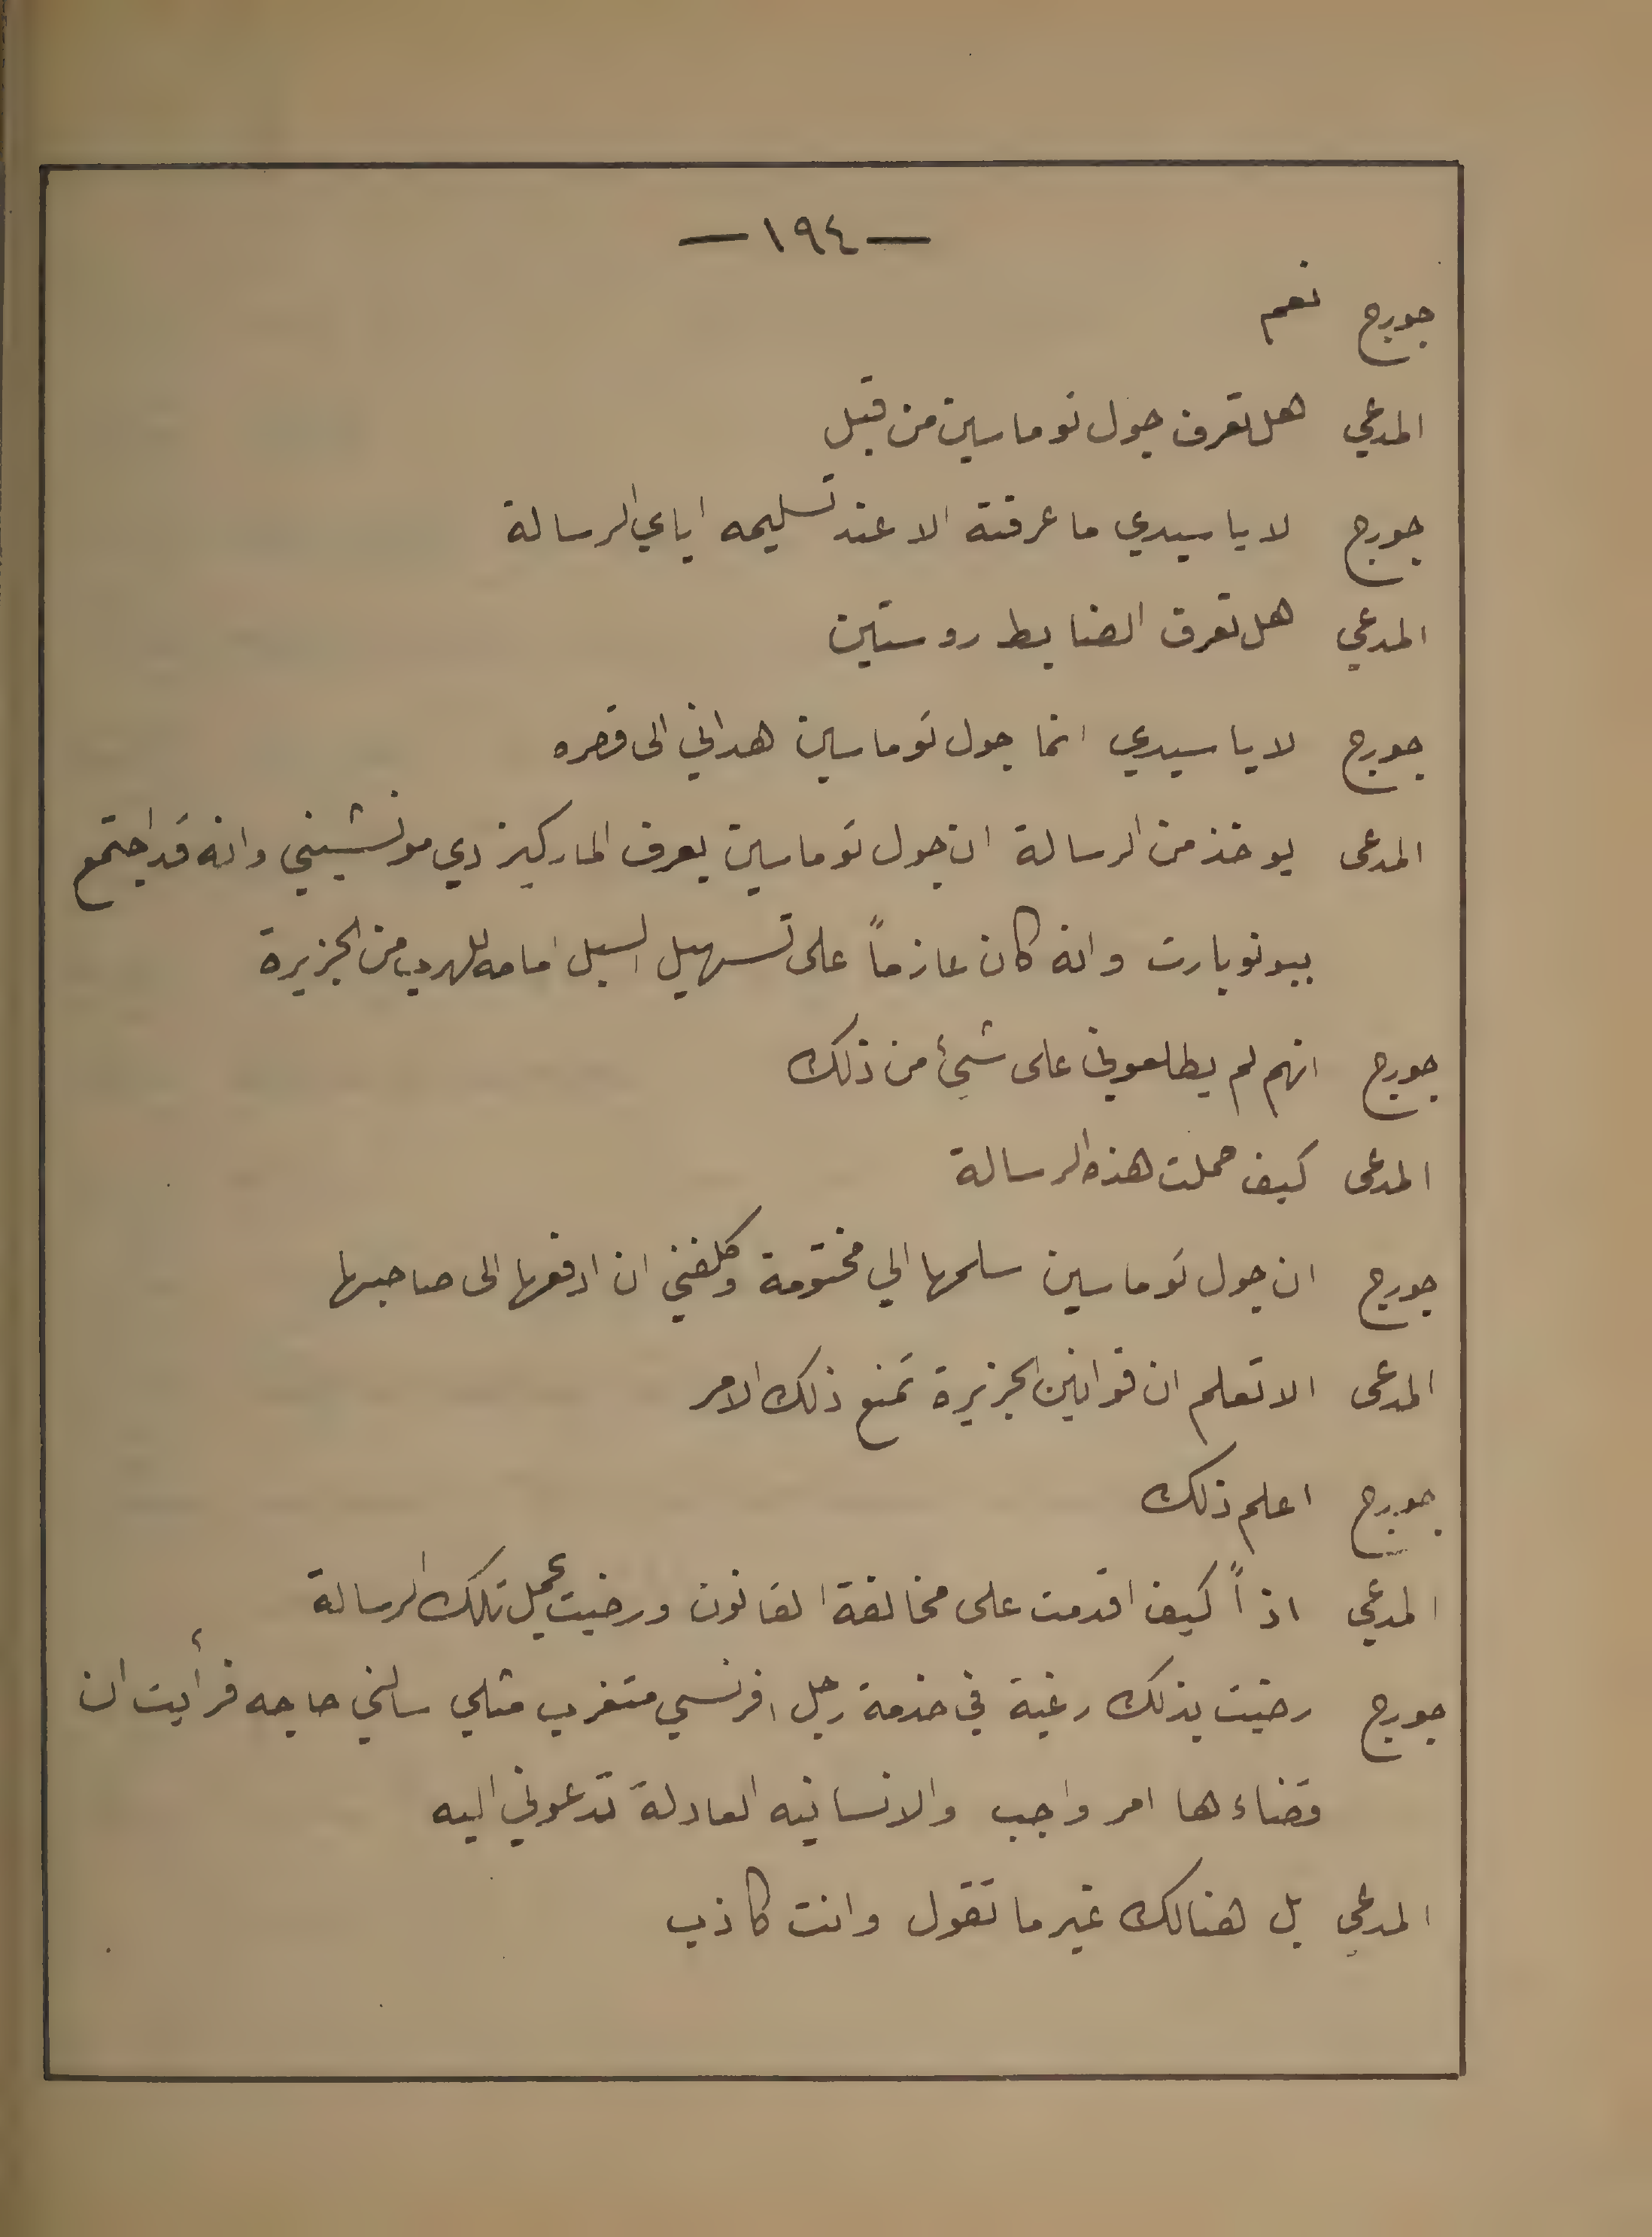 — ١٩٤ —
جورج نعم
المدعي هل تعرف جول توماسين من قبل
جورج لا يا سيدي ما عرفته الا عند تسليمه اياي الرسالة
المدعي هل تعرف الضابط روستين
جورج لا يا سيدي انما جول توماسين هداني الى قصره
المدعى يوخذ من الرسالة ان جول توماسين يعرف الماركيز دي مونشيني وانه قد اجتمع
ببونوبارت وانه كان عازماً على تسهيل السبل امامه للهرب من الجزيرة
جورج انهم لم يطلعوني على شيئ من ذلك
المدعى كيف حملت هذه الرسالة
جورج ان جول توماسين سلمها الي مختومة وكلفني ان ادفعها الى صاحبها
المدعى الا تعلم ان قوانين الجزيرة تمنع ذلك الامر
جورج اعلم ذلك
المدعي اذاً كيف اقدمت على مخالفة القانون ورضيت بحمل تلك الرسالة
جورج رضيت بذلك رغبة في خدمة رجل افرنسي متغرب مثلي سالني حاجه فرأيت ان
قضاءها امر واجب والانسانيه العادلة تدعوني اليه
المدعي بل هنالك غير ما تقول وانت كاذب